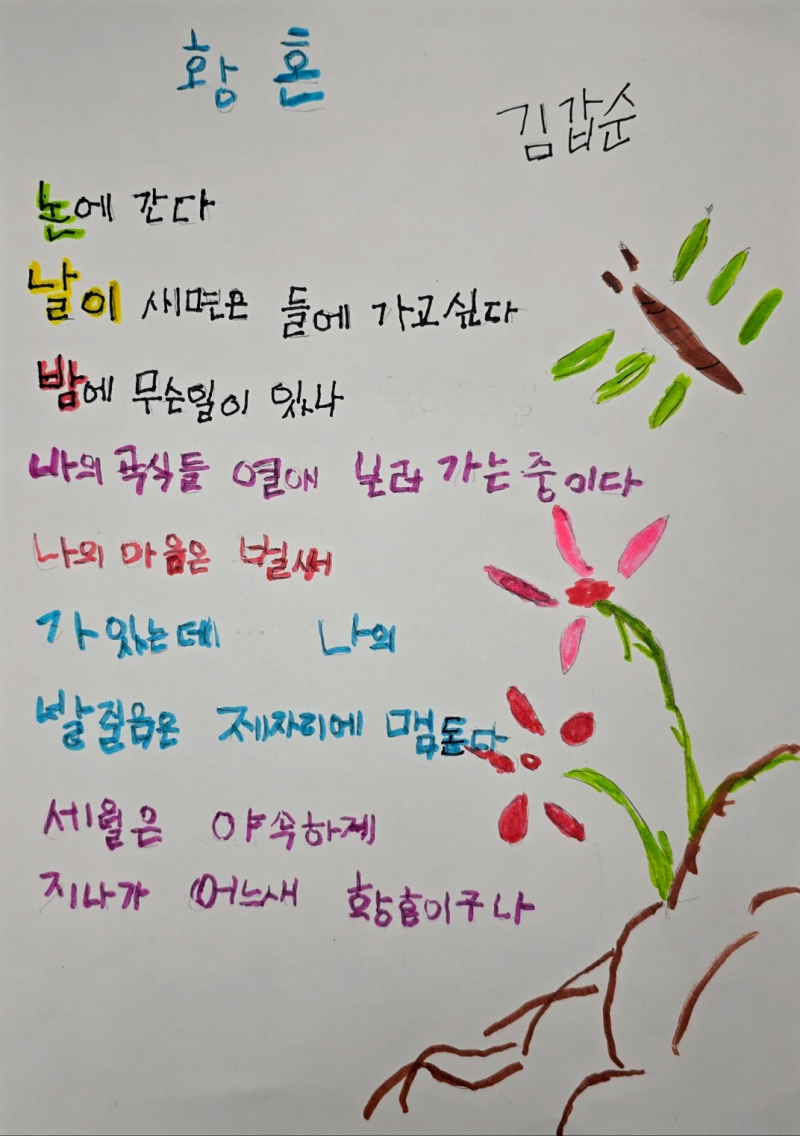 황혼
김갑순
논에 간다
날이 새면은 들에 가고싶다
밤에 무슨일이 있나
나의 곡식들 열애 보러 가는중이다
나의 마음은 벌써
가 있는데 나의
발줄음은 제자리에 맴돈다
세월은 야속하게
지나가 어느새 황홈이구나